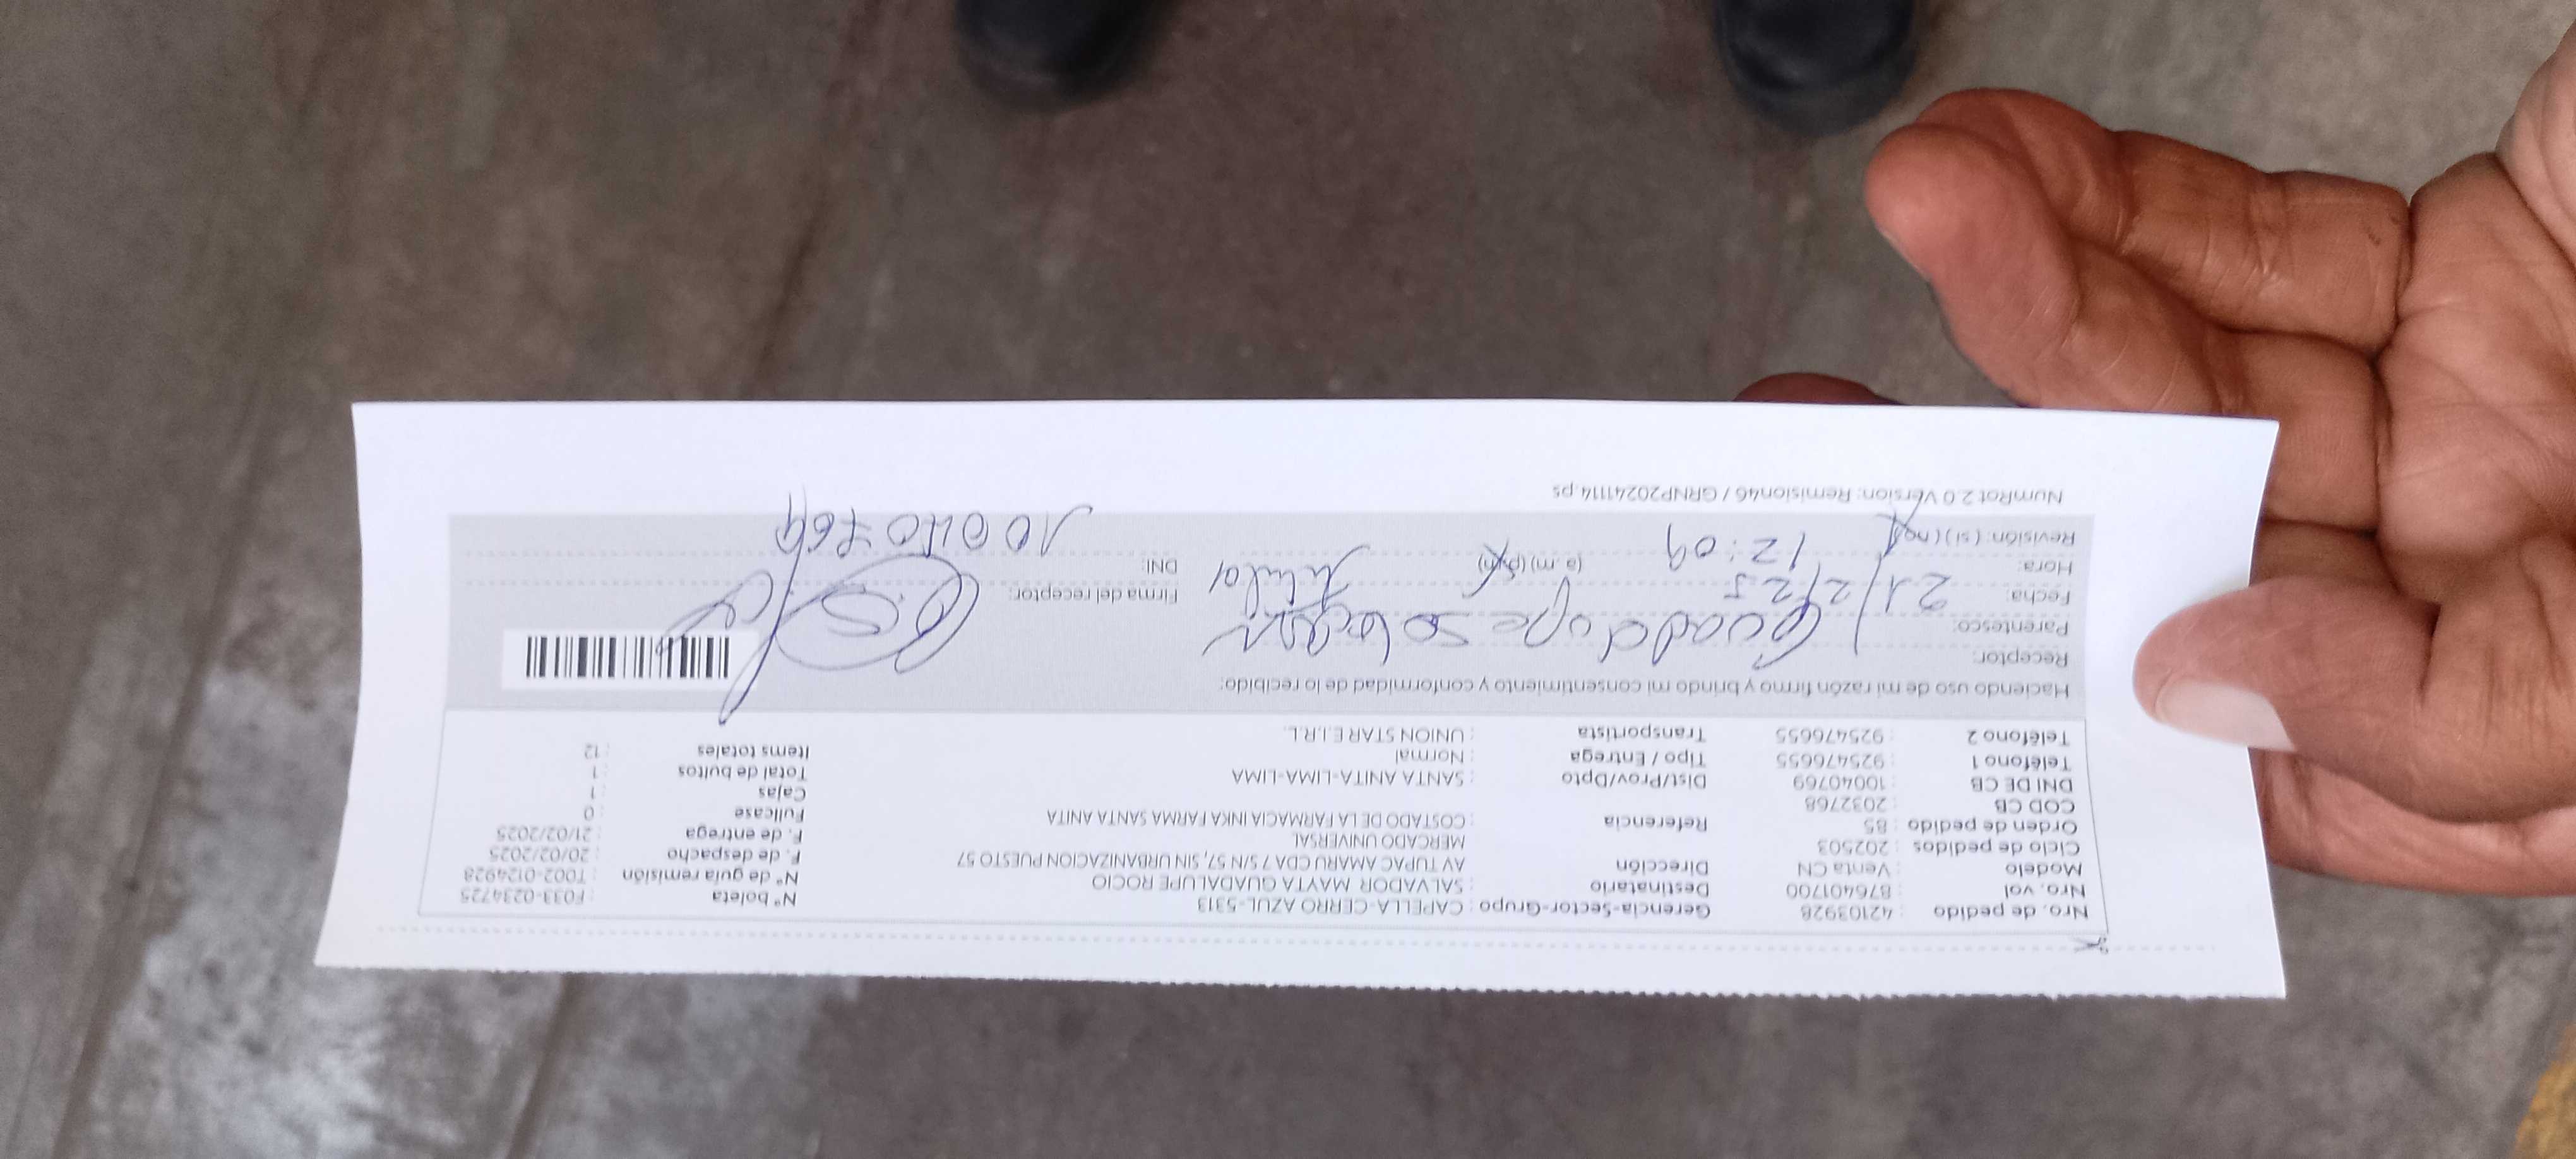 Nro. de pedido : 42103928 Gerencia-Sector-Grupo : CAPELLA-CERRO AZUL-5313 N° boleta : F033-0234725
Nro. vol : 876401700 Destinatario : SALVADOR MAYTA GUADALUPE ROCIO N° de guía remisión : T002-0124928
Modelo : Venta CN Dirección : AV TUPAC AMARU CDA 7 S/N 57, SIN URBANIZACION PUESTO 57 F. de despacho : 20/02/2025
MERCADO UNIVERSAL
Ciclo de pedidos : 202503 F. de entrega : 21/02/2025
Orden de pedido : 85 Referencia : COSTADO DE LA FARMACIA INKA FARMA SANTA ANITA Fullcase : 0
COD CB : 2032768 Cajas : 1
DNI DE CB : 10040769 Dist/Prov/Dpto : SANTA ANITA-LIMA-LIMA Total de bultos : 1
Teléfono 1 : 925476655 Tipo / Entrega : Normal Items totales : 12
Teléfono 2 : 925476655 Transportista : UNION STAR E.I.R.L.
Haciendo uso de mi razón firmo y brindo mi consentimiento y conformidad de lo recibido:
Receptor: Guadalupe
Parentesco: Titular
Fecha: 21/2/25 Firma del receptor:
Hora: 12:09 (a. m) (p.m) DNI: 10040769
Revisión: (si) (no)
NumRot 2.0 Version: Remision46 / GRNP20241114.ps